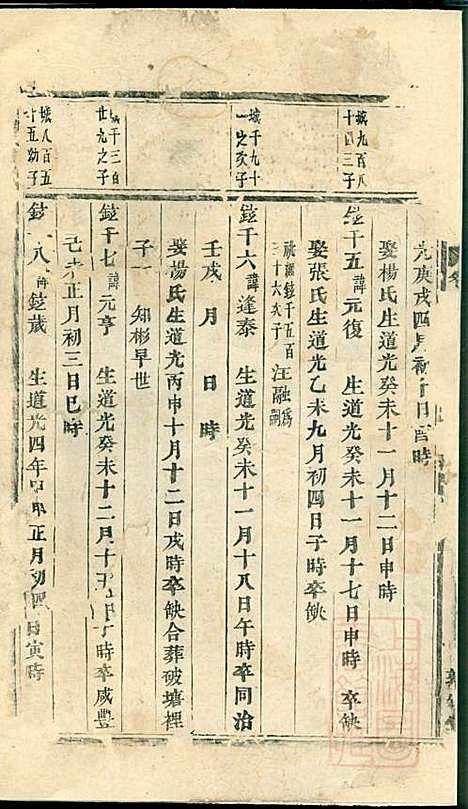 光庚戌四月初十日酉時
娶楊氏生道光癸未十一月十二日申時
城九百八
十四三子
鎡千五諱元復 生道光癸未十一月十七日申時 卒缺
娶張氏生道光乙未九月初四日子時卒缺
祧繼鎡千五百
三十六次子
汪融為
嗣
城千九十
一之次子
鎡千六諱逢泰 生道光癸未十一月十八日午時卒同治
壬戌 月 日 時
娶楊氏生道光丙申十月十二日戌時卒缺合葬破塘裡
子一 知彬早世
千三百
廿九之子
鎡千七諱元亨 生道光癸未十二月十 時卒咸豐
己未正月初三日巳時
城八百五
十五幼子
鎡 八諱鎡歲 生道光四年甲申正月初四日寅時